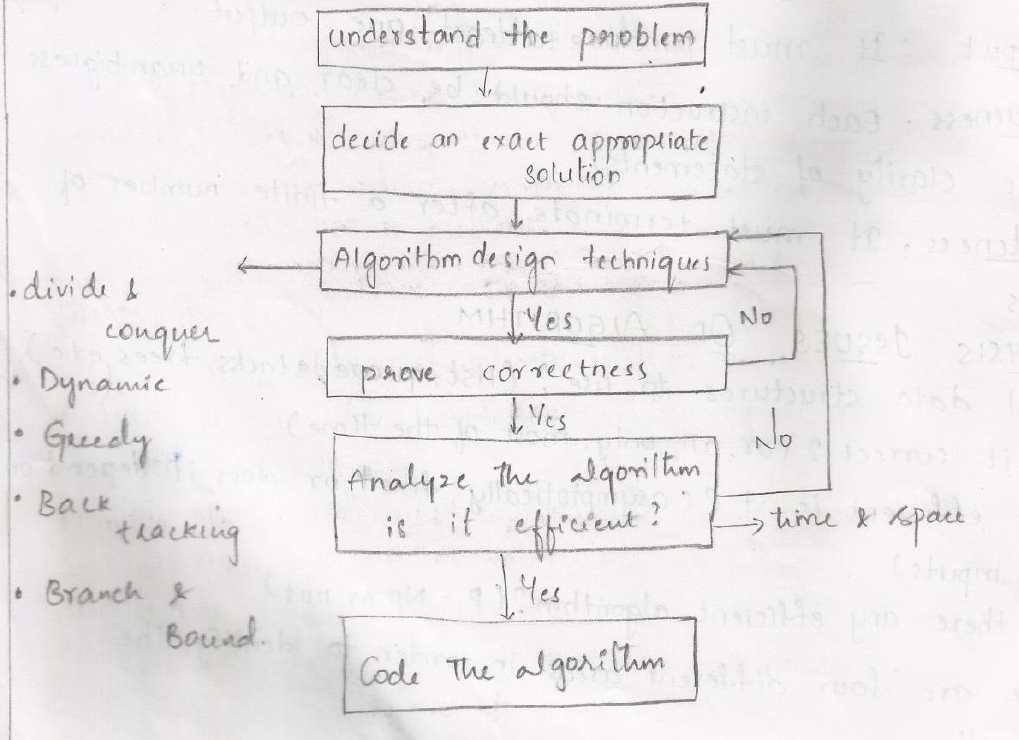 understand the problem
decide an exact appropriate
solution
Algorithm design techniques
• divide &
conquer
• Dynamic
• Greedy
• Back
tracking
• Branch &
Bound.
Yes
No
prove correctness
Yes
No
Analyze the algorithm
is it efficient?
time & space
Yes
Code The algorithm